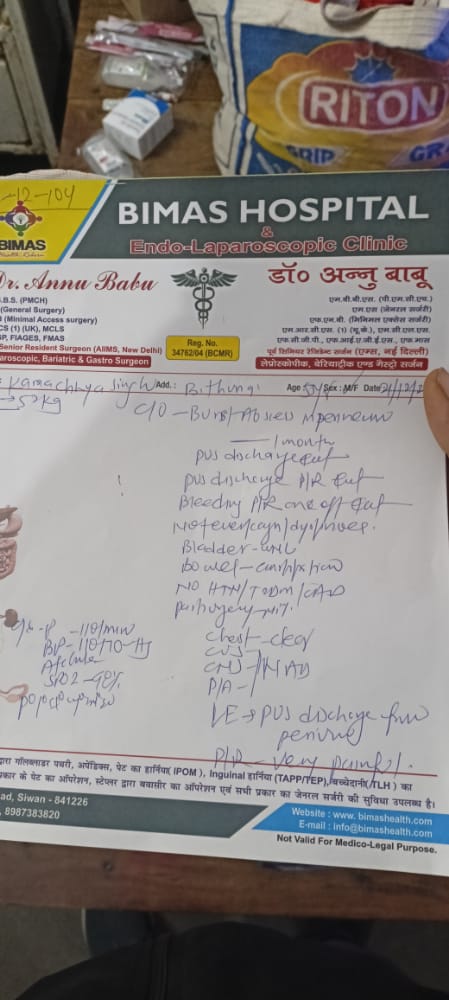 RITON
GRIP
-12-104
BIMAS
BIMAS HOSPITAL
&
Endo-Laparoscopic Clinic
Dr. Annu Babu
डॉ० अन्नु बाबू
.B.S. (PMCH)
(General Surgery)
(Minimal Access surgery)
CS (1) (UK), MCLS
GP, FIAGES, FMAS
Senior Resident Surgeon (AIIMS, New Delhi)
aroscopic, Bariatric & Gastro Surgeon
Reg. No.
34762/04 (BCMR)
एम.बी.बी.एस. (पी.एम.सी.एच.)
एम.एस (जेनरल सर्जरी)
एफ.एन.बी. (मिनिमल एक्सेस सर्जरी)
एम.आर.सी.एस. (1) (यू.के.), एम.सी.एल.एस.
एफ.सी.जी.पी., एफ.आई.ए.जी.ई.एस., एफ.मास
पूर्व सिनियर रेजिडेन्ट सर्जन (एम्स, नई दिल्ली)
लेप्रोस्कोपीक, वेरियाट्रीक एण्ड गैस्ट्रो सर्जन
Kamachhya Singh Add.: Age Sex : M/F Date
52 kg
C/O - Burst Abscess
/1month
pus discharge
pus discharge P/R
Bleeding P/R one off
No fever/
Bladder-
bowel -
NO HTN/T2DM/CAD
P - 110/min
BP - 110/70
SPO2 - 90%
Chest - clear
CVS
CNS / NAD
P/A -
LE → pus discharge from
P/R - very painful
द्वारा गॉलब्लाडर पथरी, अपेंडिक्स, पेट का हार्निया( IPOM ), Inguinal हार्निया (TAPP/TEP), बच्चेदानी(TLH ) का
प्रकार के पेट का ऑपरेशन, स्टेप्लर द्वारा बवासीर का ऑपरेशन एवं सभी प्रकार का जेनरल सर्जरी की सुविधा उपलब्ध है।
ad, Siwan - 841226
, 8987383820
Website : www. bimashealth.com
E-mail : info@bimashealth.com
Not Valid For Medico-Legal Purpose.